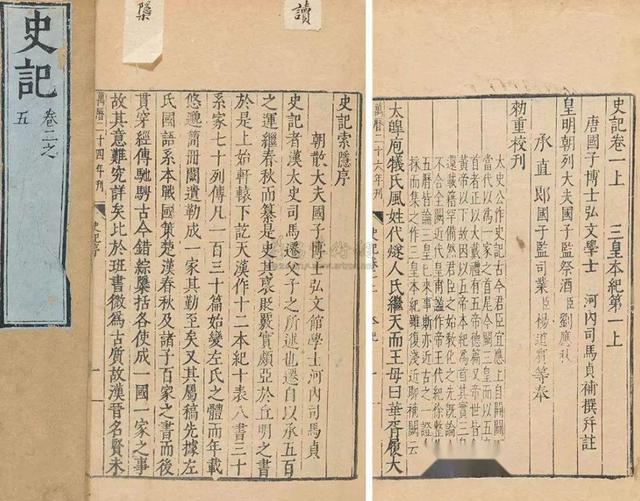 史記
卷二之
五
讀
史記索隱序
朝散大夫國子博士弘文館學士河内司馬貞
史記者漢太史司馬遷父子之所述也遷自以承五百
之運繼春秋而纂是史其褒貶覈實頗亞於丘明之書
於是上始軒轅下訖天漢作十二本紀十表八書三十
系家七十列傳凡一百三十篇始變左氏之體而年載
悠邈簡冊闕遺勒成一家其勤至矣又其屬稿先據左
氏國語系本戰國策楚漢春秋及諸子百家之書而後
貫穿經傳馳騁古今錯綜櫽括各使成一國一家之事
故其意難究詳矣比於班書微爲古質故漢晉名賢未
萬曆二十四年刊
史記序
史記卷一上
三皇本紀第一上
唐國子博士弘文學士 河内司馬貞補撰幷註
皇明朝列大夫國子監祭酒臣劉應秋
承直郎國子監司業臣楊道賓等奉
勑重校刊
太史公作史記古今君臣宜應上自開闢
當代以爲一家之首尾今闕三皇而以五
首者正以大戴禮有五帝德篇又帝世皆
黃帝以下故因以五帝本紀爲首其實三
還載籍罕備然君臣之始敎化之先旣論
不合全闕近代皇甫謐作帝王代紀徐整
五曆皆論三皇已來事斯亦近古之一證
採而集之作三皇本紀雖復淺近聊補闕云
太皥庖犧氏風姓代燧人氏繼天而王母曰華胥履大
萬曆二十六年刊